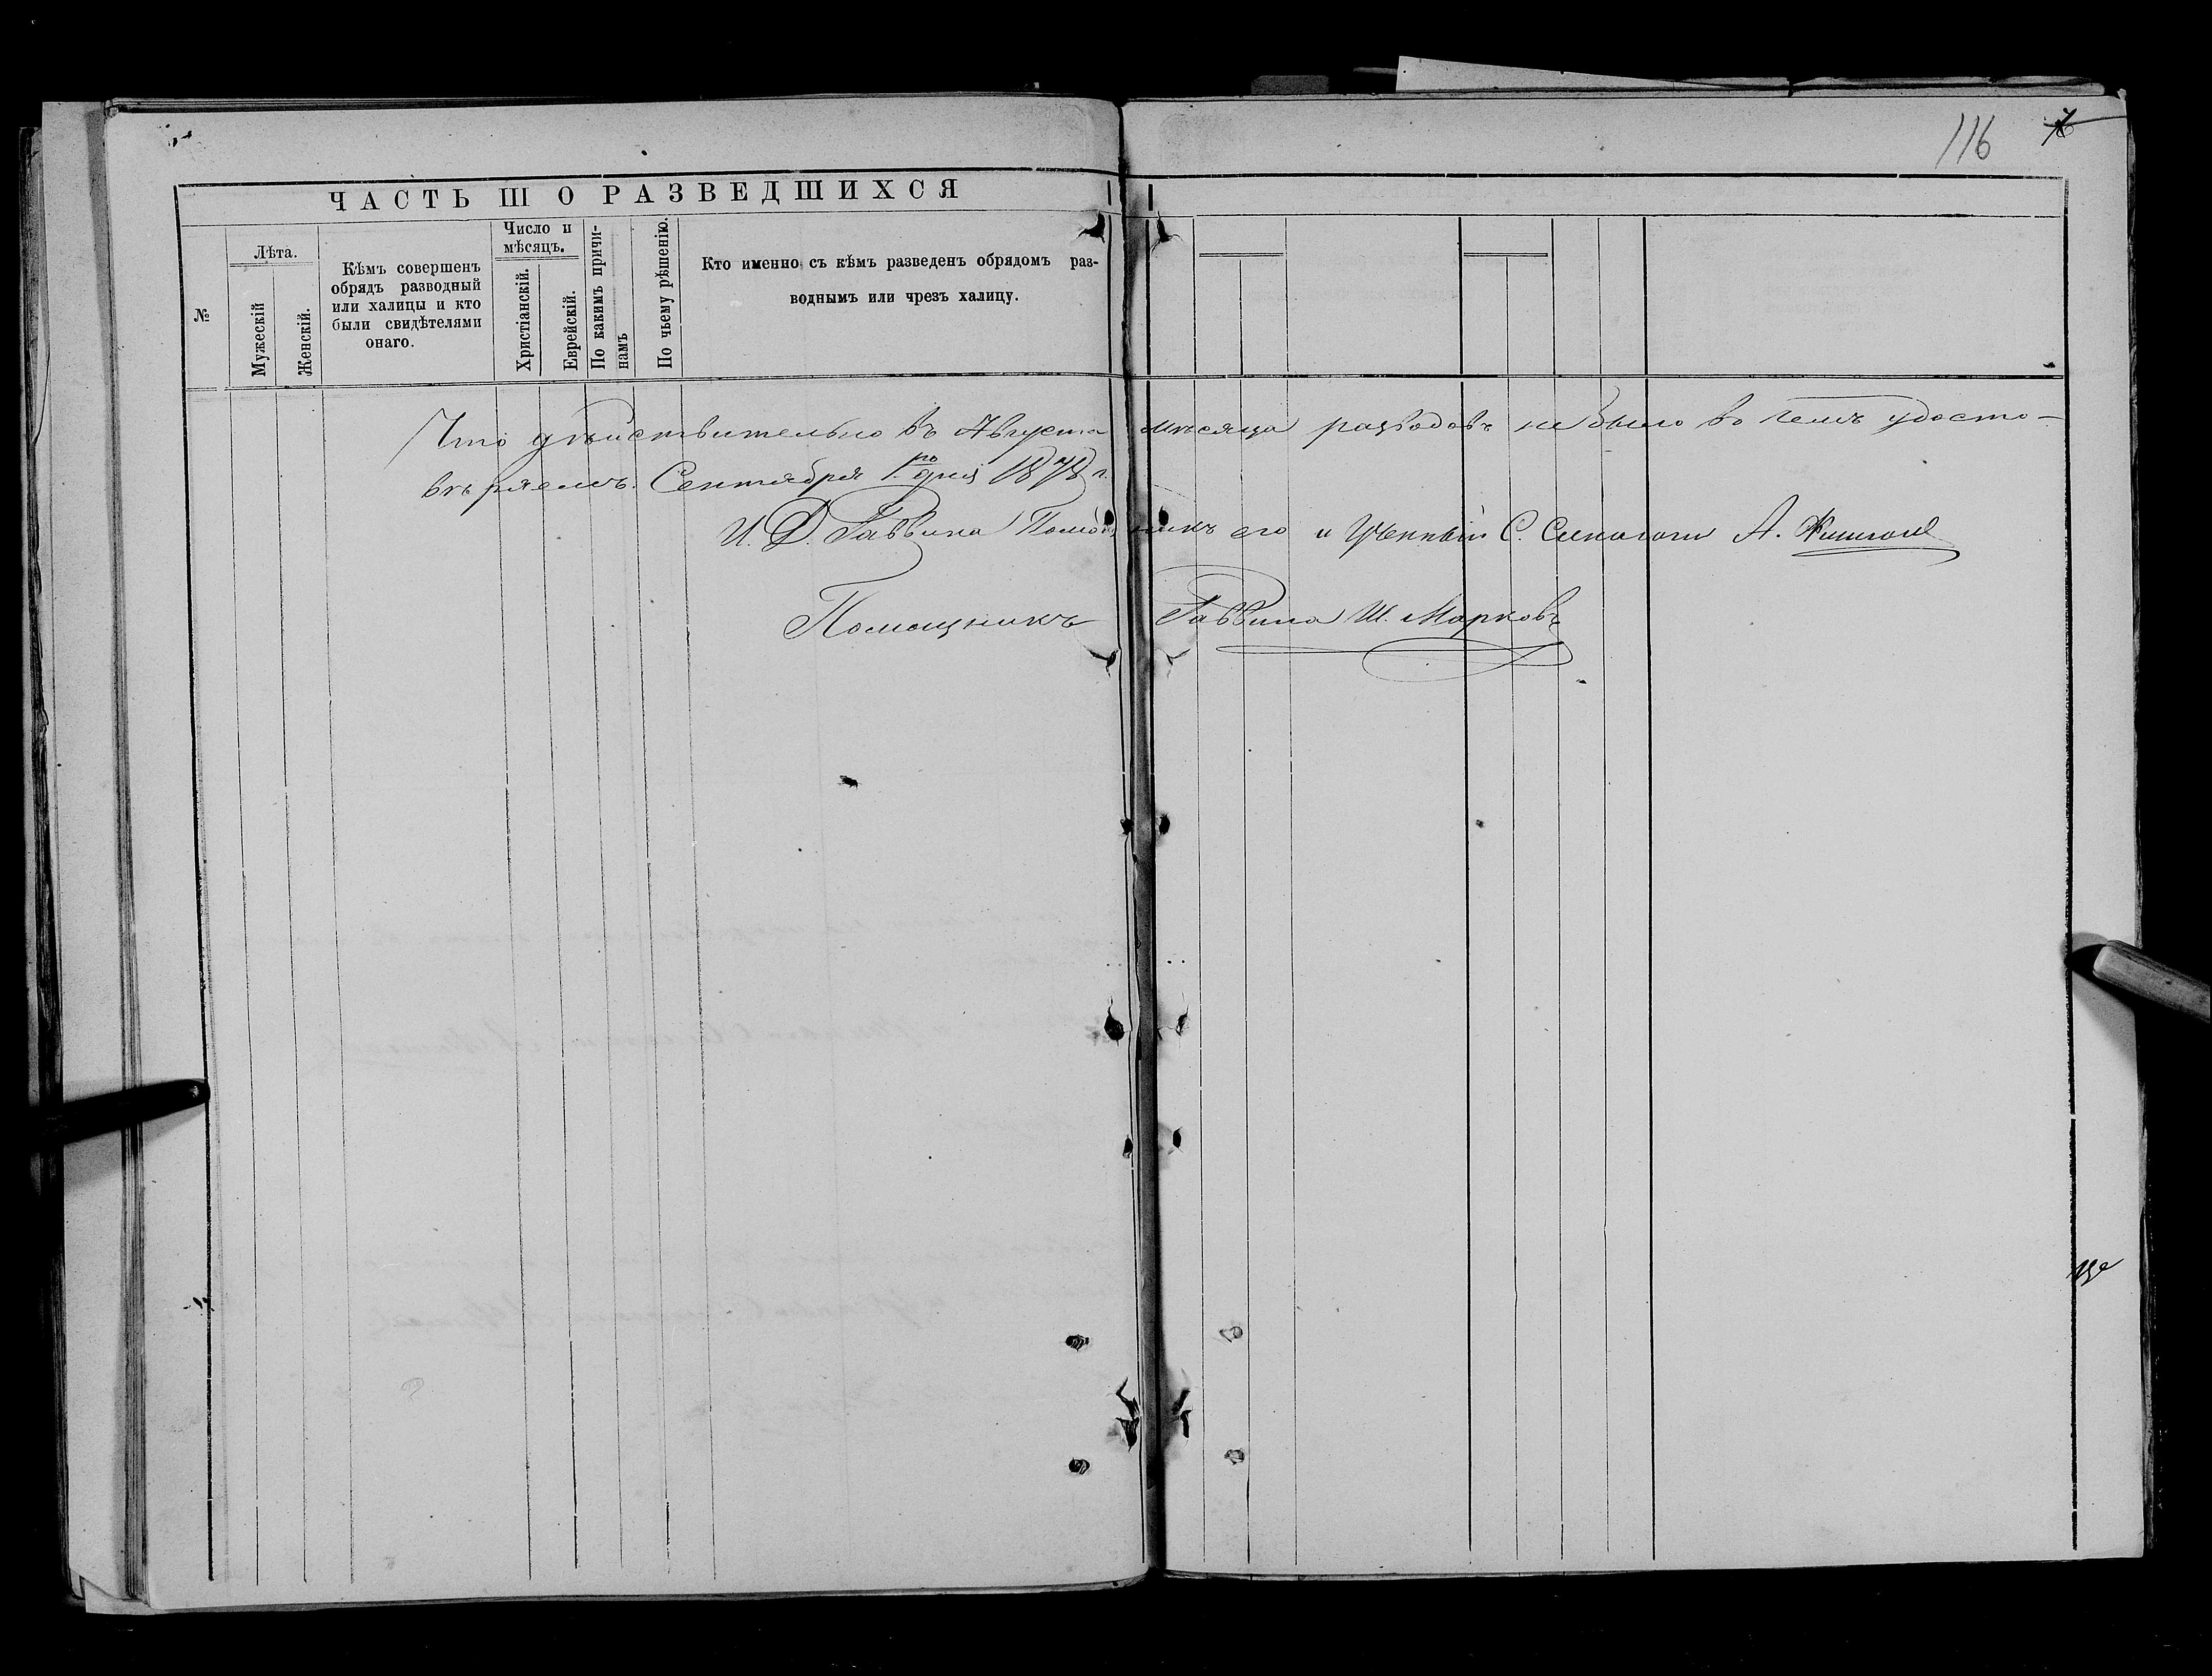 116
ЧАСТЬ III О РАЗВЕДШИХСЯ
№
Лѣта.
Мужескій
Женскій.
Кѣмъ совершенъ
обрядъ разводный
или халицы и кто
были свидѣтелями
онаго.
Число и
мѣсяцъ.
Христіанскій.
Еврейскій.
По какимъ причи-
намъ
По чьему рѣшенію.
Кто именно съ кѣмъ разведенъ обрядомъ раз-
воднымъ или чрезъ халицу.
Что дѣйствительно въ Августа мѣсяца разводовъ не было во чемъ удосто-
вѣряемъ. Сентября 1го дня 1878 г.
И. Д. Раввина Помощникъ его и Ученный С. Синагоги А.
Помощникъ Раввина Ш. Марковъ